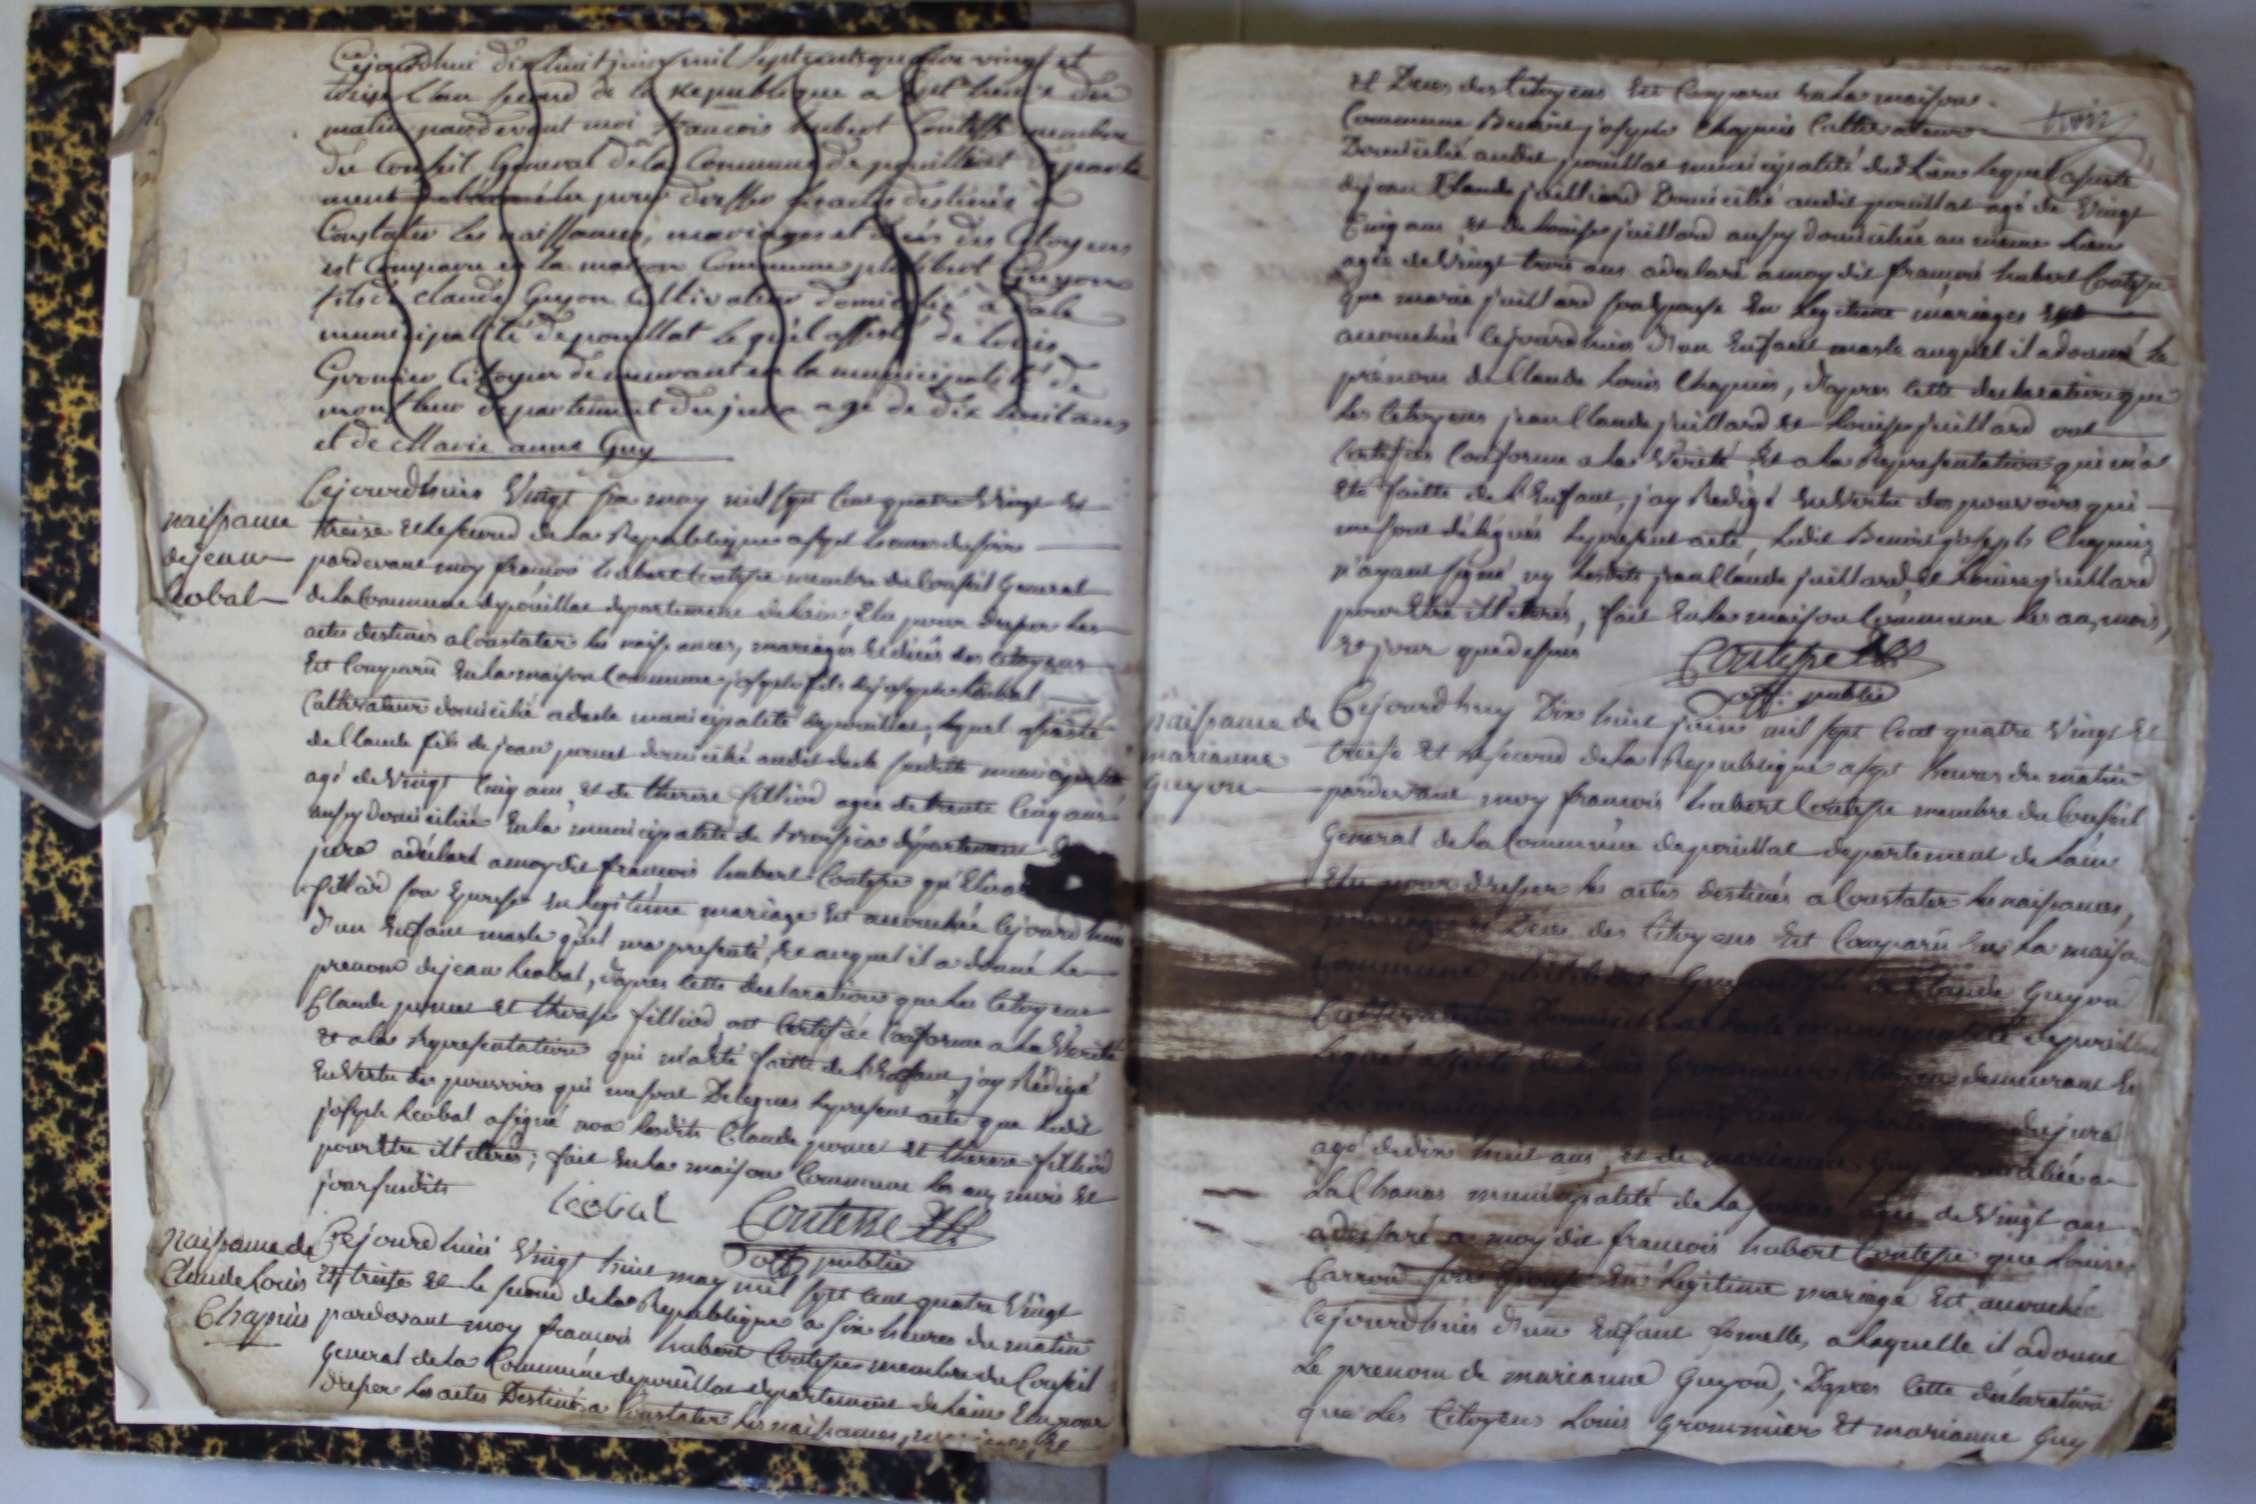 Cejourdhui dix huit juin mil sept cents quatre vingt et
treize l'an second de la Republique a sept heure du
matin pardevant moi francois hubert Contesse membre
du Conseil General de la Commune de pouillat departe
ment élu pour dresser les actes destinés à
Constater les naissances, mariages et décès des Citoyens
est Comparu en la maison Commune philibert Guyon
fils de claude Guyon Cultivateur domicilié à
municipalité de pouillat le quel assisté de Louis
Gromier Citoyen demeurant en la municipalité de
montfleur departement du jura agé de dix huit ans
et de Marie anne Guy
naissance
de jean
Leobal
Cejourdhuis Vingt six may mil sept Cent quatre Vingt Et
treise et le second de la Republique a sept heures du soir
pardevant moy francois hubert Contesse membre du Conseil General
de la Commune de pouillat departement de Lain Elu pour dresser les
actes destinés a Constater les naissances, mariages et décès des Citoyens
Est Comparû En la maison Commune joseph fils de joseph Léobal
Cultivateur domicilié a municipalité de pouillat, lequel assisté
de Claude fils de jean domicilié audit susditte municipalité
agé de Vingt Cinq ans, et de therese filliod agée de trente Cinq ans
aussy domiciliée En la municipalité de departement du
jura adéclaré a moy dit francois hubert Contesse qu'
fillod son Epouse En legitime mariage Est accouchée Cejourdhuis
d'un Enfant masle qu'il ma presenté, et auquel il a donné le
prenom de jean Leobal, dapres cette declaration que les Citoyens
Claude et therese fillod ont Certifiée Conforme a la Verité
et a la representation qui m'a été faitte de l'Enfant, jay Rédigé
En Vertu des pouvoirs qui me sont Delegués le present acte que ledit
joseph Leobal a signé non lesdits Claude et therese fillod
pour Etre illiterés; fait En la maison Commune les an, mois et
jour susdits
leobal Contesse
off. public
Naissance de
Claude Louis
Chapuis
Cejourdhui Vingt huit may mil sept cent quatre Vingt
et treise et le second de la Republique a six heures du matin
pardevant moy francois hubert Contesse membre du Conseil
General de la Commune de pouillat departement de Lain Elu pour
dresser les actes Destinés a Constater les naissances, mariages
et Décès des Citoyens Est Comparu En la maison
trois
Commune Benoit joseph Chapuis Cultivateur
Domicilié audit pouillat municipalité dud. Lieu lequel assisté
de jean Claude juillard Domicilié audit pouillat agé de Vingt
Cinq ans, et de Louise juillard aussy domiciliée au même Lieu
agée de Vingt trois ans adéclaré a moy dit francois hubert Contesse
que marie juillard son Epouse En legitime mariage Est
accouchée Cejourdhuis d'un Enfant masle auquel il a donné le
prénom de Claude Louis Chapuis, dapres cette declaration que
les Citoyens jean Claude juillard et Louise juillard ont
Certifiés Conforme a la Verité et a la Representation qui m'a
été faitte de l'Enfant, jay Redigé En Vertu des pouvoirs qui
me sont délégués le present acte, ledit Benoit joseph Chapuis
n'ayant signé, ny lesdits jean Claude juillard, et Louise juillard
pour Etre illiterés, fait En la maison Commune les an, mois,
et jour que dessus
Contesse
off. public
naissance de
marianne
Guyon
Cejourdhuy Dix huit juin mil sept Cent quatre Vingt et
treise et le second de la Republique a sept heures du matin
pardevant moy francois hubert Contesse membre du Conseil
General de la Commune de pouillat departement de Lain
Elu pour dresser les actes destinés a Constater les naissances,
mariages et Décès des Citoyens Est Comparû En la maison
Commune philibert Guyon fils de Claude Guyon
Cultivateur Domicilié municipalité de pouillat
Lequel assisté de Louis Grommier Citoyen demeurant En
la municipalité de departement du jura
agé de dix huit ans, et de marianne Guy Domiciliée a
La Chanas municipalité de agée de Vingt ans
adéclaré a moy dit francois hubert Contesse que Louise
Carron son Epouse En legitime mariage Est accouchée
Cejourdhuis d'un Enfant femelle, a laquelle il a donné
Le prenom de marianne Guyon, Dapres cette déclaration
que Les Citoyens Louis Grommier Et marianne Guy